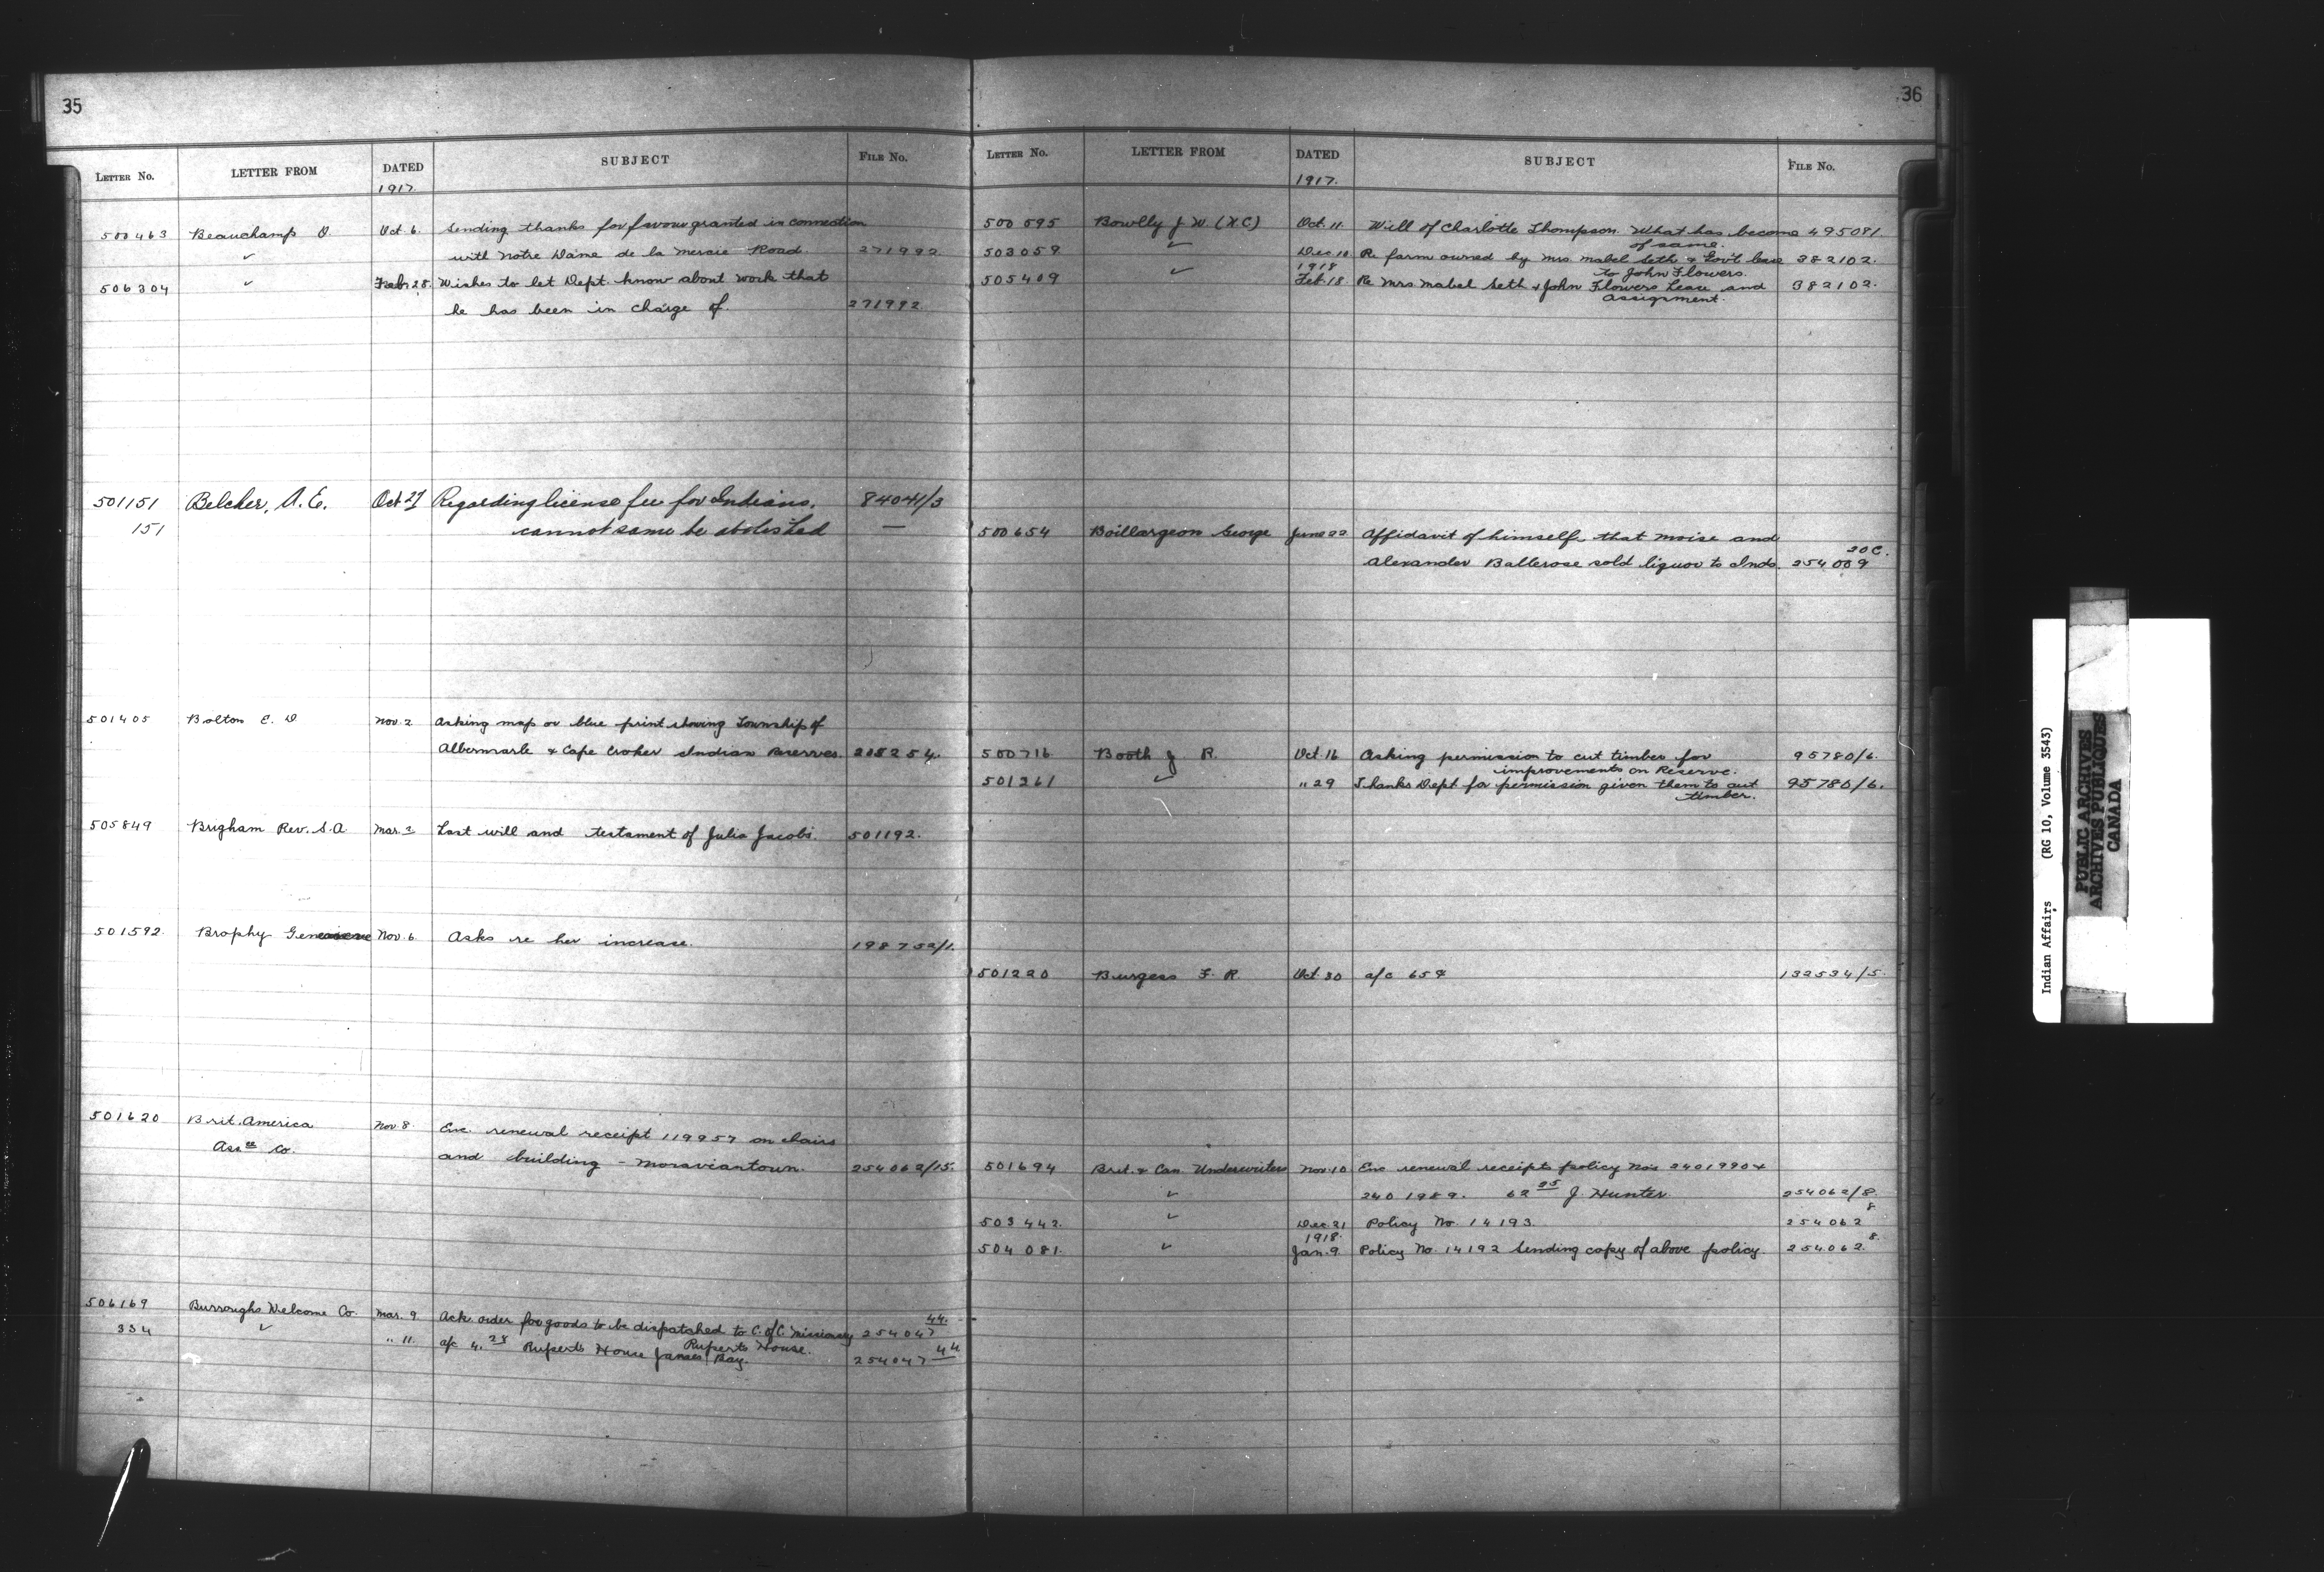 35
LETTER No. LETTER FROM DATED SUBJECT FILE No.
1917.
500463 Beauchamp O. Oct 6. Sending thanks for favour granted in connection
✓ with Notre Dame de la Mercie Road 271992.
506304 ✓ Feb 28. Wishes to let Dept. know about work that
he has been in charge of. 271992.
501151 Belcher, A. E. Oct 27 Regarding license fee for Indians. 84041/3
151 cannot same be abolished —
501405 Bolton E. D Nov. 2 Asking map or blue print showing Township of
Albermarle & Cape Croker Indian Reserves. 208254.
505849 Brigham Rev. S. A. Mar. 2 Last will and testament of Julia Jacobs. 501192.
501592. Brophy Nov. 6 Asks re her increase. 198752/1.
501620 Brit. America Nov. 8 Enc. renewal receipt 119957 on
Assce Co. and building - Moraviantown. 254062/15.
506169 Burroughs Welcome Co. Mar. 9 Ack. order for goods to be dispatched to C. of C. Missionary 254047 44.
Ruperts House.
334 ✓ " 11. a/c 4.28 Ruperts House James Bay. 254047 44
36
LETTER No. LETTER FROM DATED SUBJECT FILE No.
1917.
500595 Bowlly J. W. (K.C.) Oct. 11 Will of Charlotte Thompson. What has become 495081.
of same.
503059 ✓ Dec 10 Re farm owned by Mrs. Mabel Seth & Gov't lease 382102.
to John Flowers.
1918
505409 ✓ Feb. 18 Re Mrs Mabel Seth & John Flowers Lease and 382102.
assignment.
500654 Boillargeon George June 22 Affidavit of himself, that Moise and
Alexander Ballerose sold liquor to Inds. 254009 20C.
500716 Booth J R. Oct. 16 Asking permission to cut timber for 95780/6.
improvements on Reserve.
501261 ✓ " 29 Thanks Dept for permission given them to cut 95780/6.
timber.
501220 Burgess F. R. Oct. 30 a/c 65¢ 132534/5.
501694 Brit. & Can. Underwriters Nov. 10 Enc renewal receipts policy Nos 2401990 &
✓ 2401989. 62 25 J. Hunter 254062/8.
503442. ✓ Dec 21 Policy No. 14193. 254062 8
1918.
504081. ✓ Jan. 9 Policy No. 14192 Sending copy of above policy. 254062. 8.
Indian Affairs (RG 10, Volume 3543)
PUBLIC ARCHIVES
ARCHIVES PUBLIQUES
CANADA